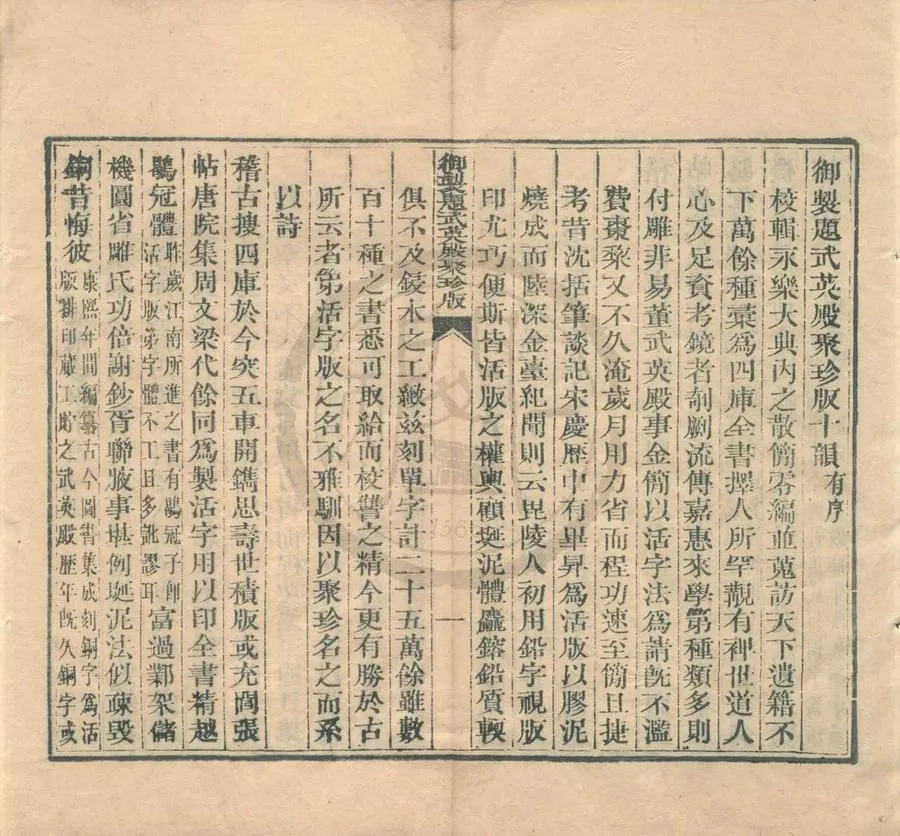 御製題武英殿聚珍版十韻有序
校輯永樂大典內之散簡零編並蒐訪天下遺籍不
下萬餘種彙為四庫全書擇人所罕覯有裨世道人
心及足資考鏡者剞劂流傳嘉惠來學第種類多則
付雕非易董武英殿事金簡以活字法為請既不濫
費棗棃又不久淹歲月用力省而程功速至簡且捷
考昔沈括筆談記宋慶歷中有畢昇為活版以膠泥
燒成而陸深金臺紀聞則云毘陵人初用鉛字視版
印尤巧便斯皆活版之權輿顧埏泥體麤鎔鉛質輭
御製題武英殿聚珍版
一
俱不及鋟木之工緻茲刻單字計二十五萬餘雖數
百十種之書悉可取給而校讐之精今更有勝於古
所云者第活字版之名不雅馴因以聚珍名之而系
以詩
稽古搜四庫於今突五車開鐫思壽世積版或充閭張
帖唐院集周文梁代餘同為製活字用以印全書精越
鶡冠體昨歲江南所進之書有鶡冠子卽活字版第字體不工且多訛謬耳富過鄴架儲
機圓省雕氏功倍謝鈔胥聯腋事堪例埏泥法似疎毀
銅昔悔彼康熙年間編纂古今圖書集成刻銅字為活版排印蕆工貯之武英殿歷年既久銅字或